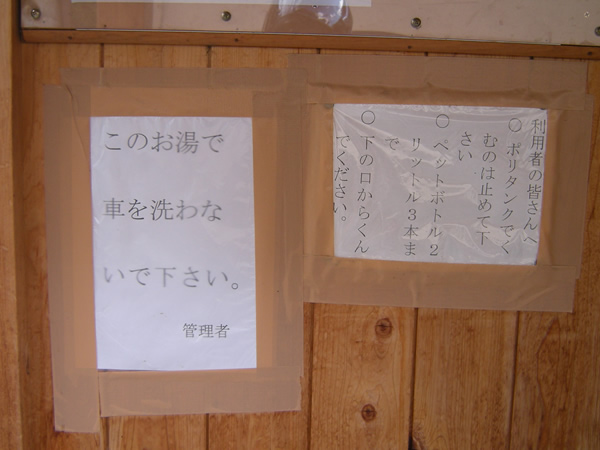 このお湯で
車を洗わな
いで下さい。
管理者
利用者の皆さんへ
○ ポリタンクでく
むのは止めて下
さい
○ ペットボトル２
リットル３本ま
で
○ 下の口からくん
でください。